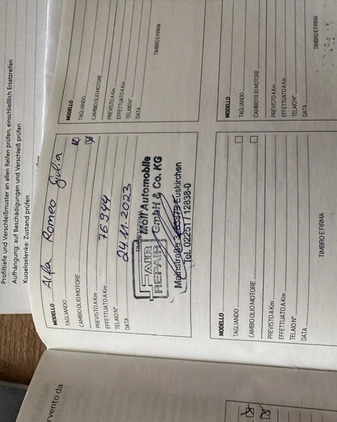 Profiltiefe und Verschleißmuster an allen Reifen prüfen, einschließlich Ersatzreifen
Aufhängung: auf Beschädigungen und Verschleiß prüfen
Kugelgelenke: Zustand prüfen
MODELLO
TAGLIANDO
CAMBIO OLIO MOTORE
PREVISTO A Km
EFFETTUATO A Km
TELAIO N°
DATA
TIMBRO E FIRMA
MODELLO
TAGLIANDO
CAMBIO OLIO MOTORE
PREVISTO A Km
EFFETTUATO A Km
TELAIO N°
DATA
TIMBRO E FIRMA
MODELLO Alfa Romeo Giulia
TAGLIANDO
CAMBIO OLIO MOTORE
PREVISTO A Km
EFFETTUATO A Km 76944
TELAIO N°
DATA 24.11.2023
FAIR
REPAIR
Moll Automobile
GmbH & Co. KG
Euskirchen
Tel. 02251 / 12838-0
MODELLO
TAGLIANDO
CAMBIO OLIO MOTORE
PREVISTO A Km
EFFETTUATO A Km
TELAIO N°
DATA
TIMBRO E FIRMA
rvento da